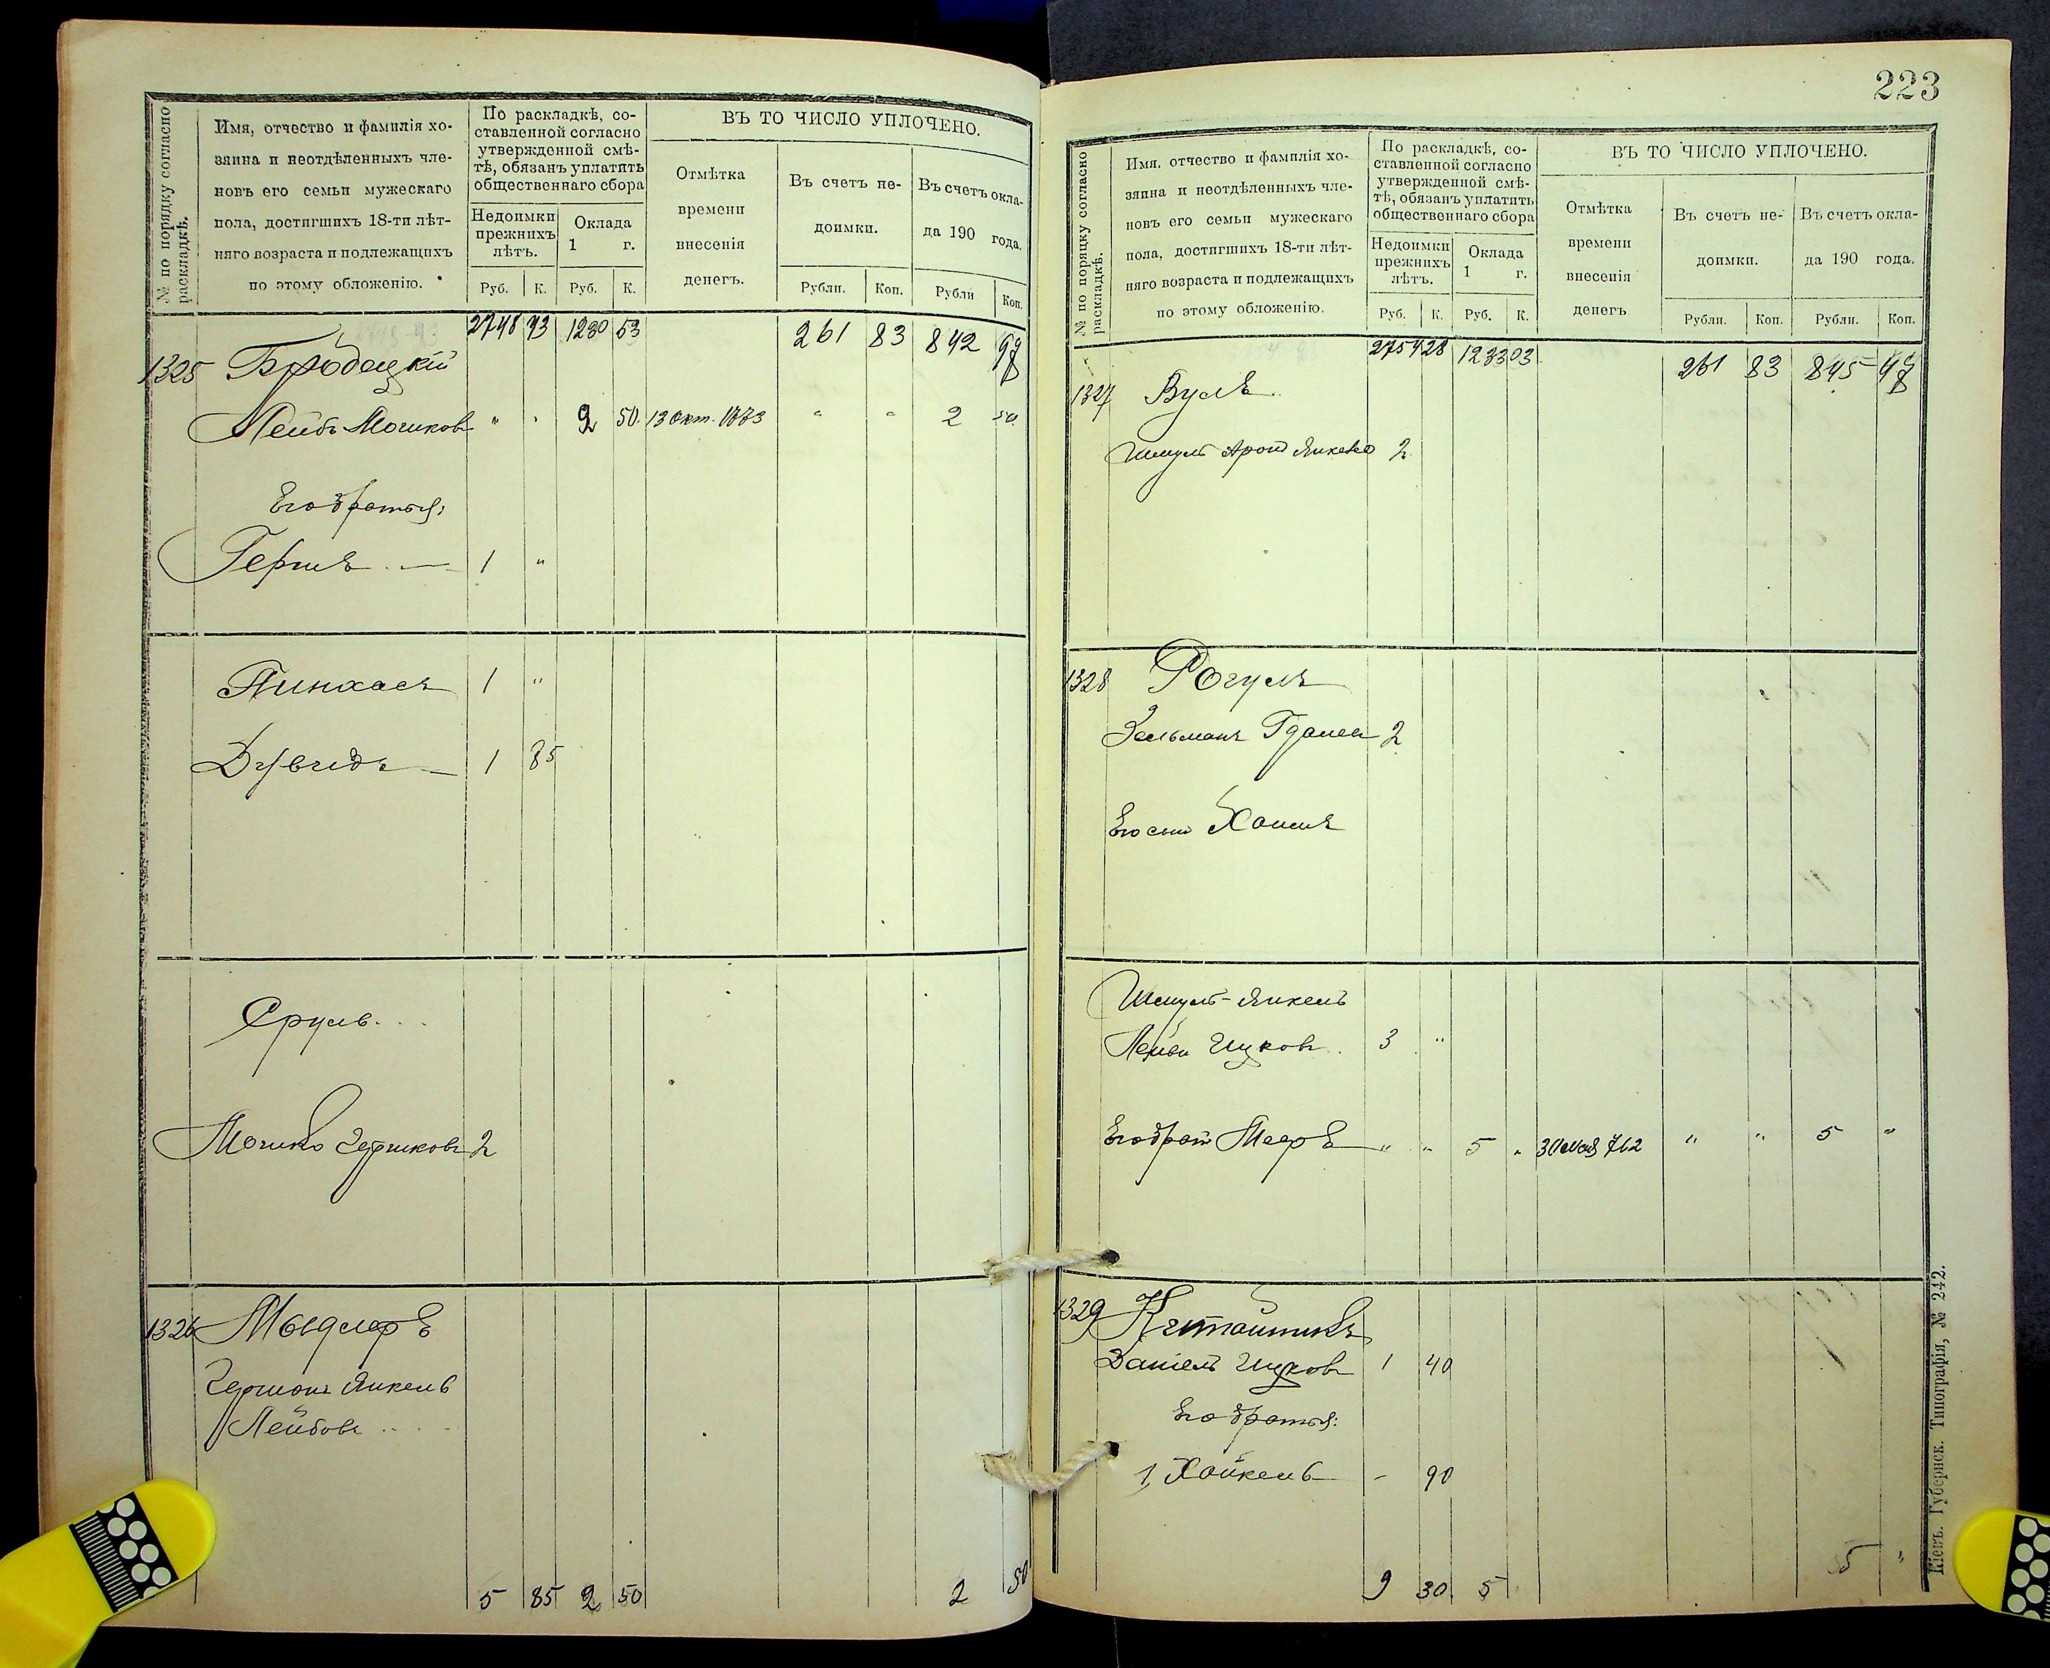 № по порядку согласно раскладкѣ.
Имя, отчество и фамилія хо-
зяина и неотдѣленныхъ чле-
новъ его семьи мужескаго
пола, достигшихъ 18-ти лѣт-
няго возраста и подлежащихъ
по этому обложенію.
По раскладкѣ, со-
ставленной согласно
утвержденной смѣ-
тѣ, обязанъ уплатить
общественнаго сбора
Недоимки
прежнихъ
лѣтъ.
Оклада
1 г.
Руб. К. Руб. К.
ВЪ ТО ЧИСЛО УПЛОЧЕНО.
Отмѣтка
времени
внесенія
денегъ.
Въ счетъ не-
доимки.
Въ счетъ окла-
да 190 года.
Рубли. Коп. Рубли Коп.
2748 43 1230 53 261 83 842 97
1325 Бродецкій
Лейбъ Мошковъ " " 2 50 13 Окт. 1773 " " 2 50
Его братья:
Гершъ 1 "
Пинхасъ 1 "
Дувидъ 1 85
Сруль
Мошко Гершковъ 2
1326 Мындлеръ
Гершонъ Янкель
Лейбовъ
5 85 2 50 2 50
223
№ по порядку согласно раскладкѣ.
Имя, отчество и фамилія хо-
зяина и неотдѣленныхъ чле-
новъ его семьи мужескаго
пола, достигшихъ 18-ти лѣт-
няго возраста и подлежащихъ
по этому обложенію.
По раскладкѣ, со-
ставленной согласно
утвержденной смѣ-
тѣ, обязанъ уплатить
общественнаго сбора
Недоимки
прежнихъ
лѣтъ.
Оклада
1 г.
Руб. К. Руб. К.
ВЪ ТО ЧИСЛО УПЛОЧЕНО.
Отмѣтка
времени
внесенія
денегъ
Въ счетъ не-
доимки.
Въ счетъ окла-
да 190 года.
Рубли. Коп. Рубли. Коп.
2754 28 1233 03 261 83 845 47
1327 Вулъ
Шмуль Арон Янкево 2
1328 Рогулъ
Зельманъ Гдалев 2
Его сын Хаимъ
Шмуль-Янкель
Лейви Ицковъ 3 "
Его брат Меер " " 5 " 30 Мая 762 " " 5 "
1329 Китайникъ
Даніелъ Ицковъ 1 40
Его братья:
1, Хайкель - 90
9 30 5 5 "
Кіевъ. Губернск. Типографія, № 242.